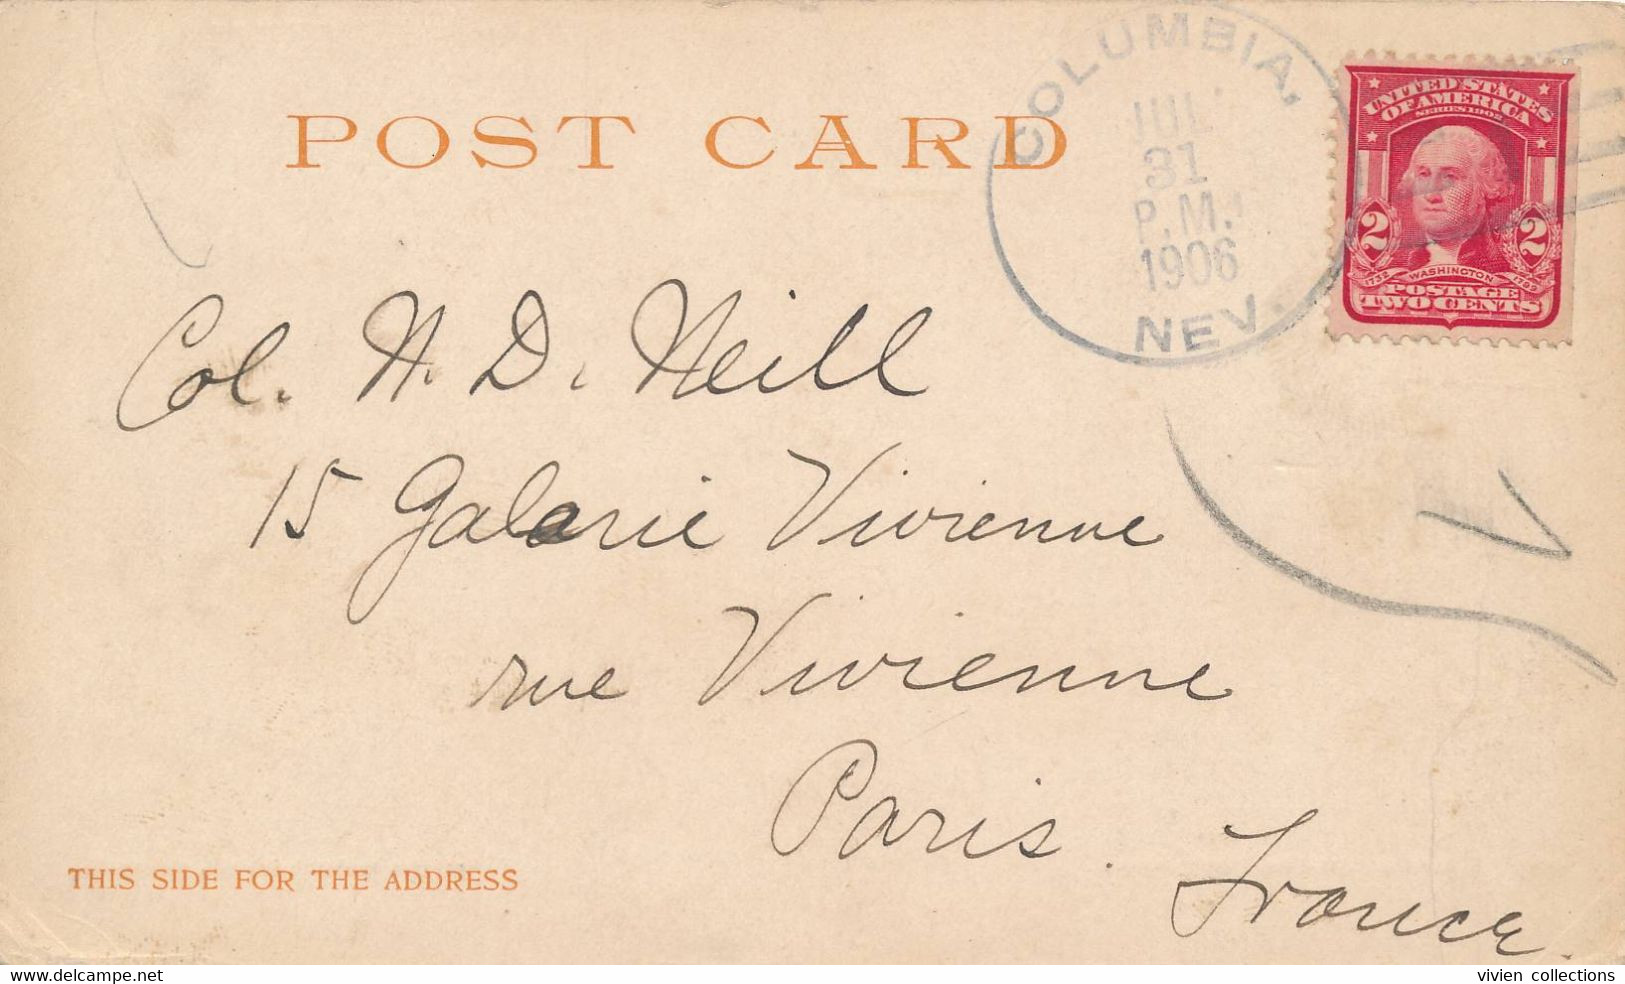 POST CARD
COLUMBIA,
JUL
31
P.M.
1906
NEV.
UNITED STATES
OF AMERICA
SERIES 1902
2 2
1732 WASHINGTON 1799
POSTAGE
TWO CENTS
Col. H. D. Neill
15 Galerie Vivienne
rue Vivienne
Paris.
France.
THIS SIDE FOR THE ADDRESS
vivien collections